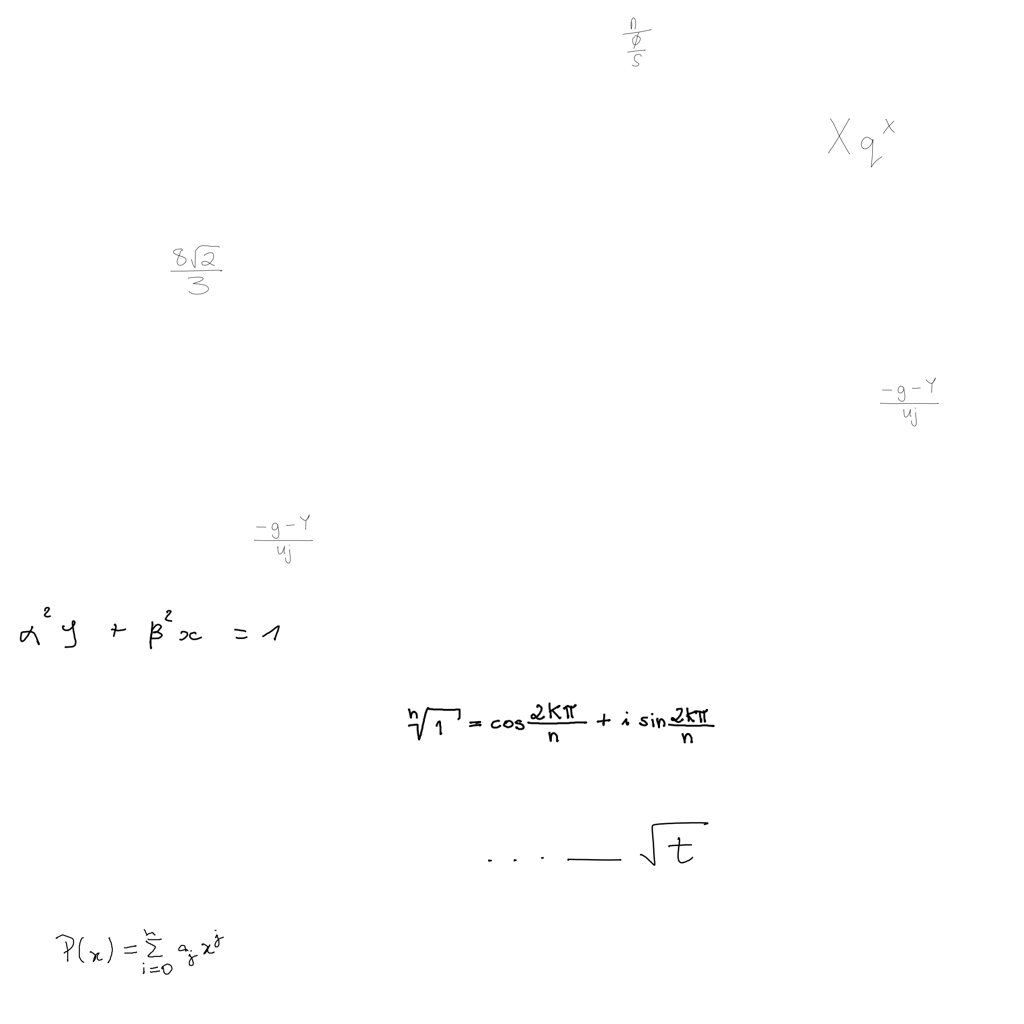 \frac{n}{\frac{\phi}{s}}
X q^x
\frac{8\sqrt{2}}{3}
\frac{-g-Y}{uj}
\frac{-g-Y}{uj}
α^2 y + β^2 x = 1
\sqrt[n]{1} = cos \frac{2kπ}{n} + i sin \frac{2kπ}{n}
... — \sqrt{t}
P(x) = \sum_{i=0}^{n} a_j x^j